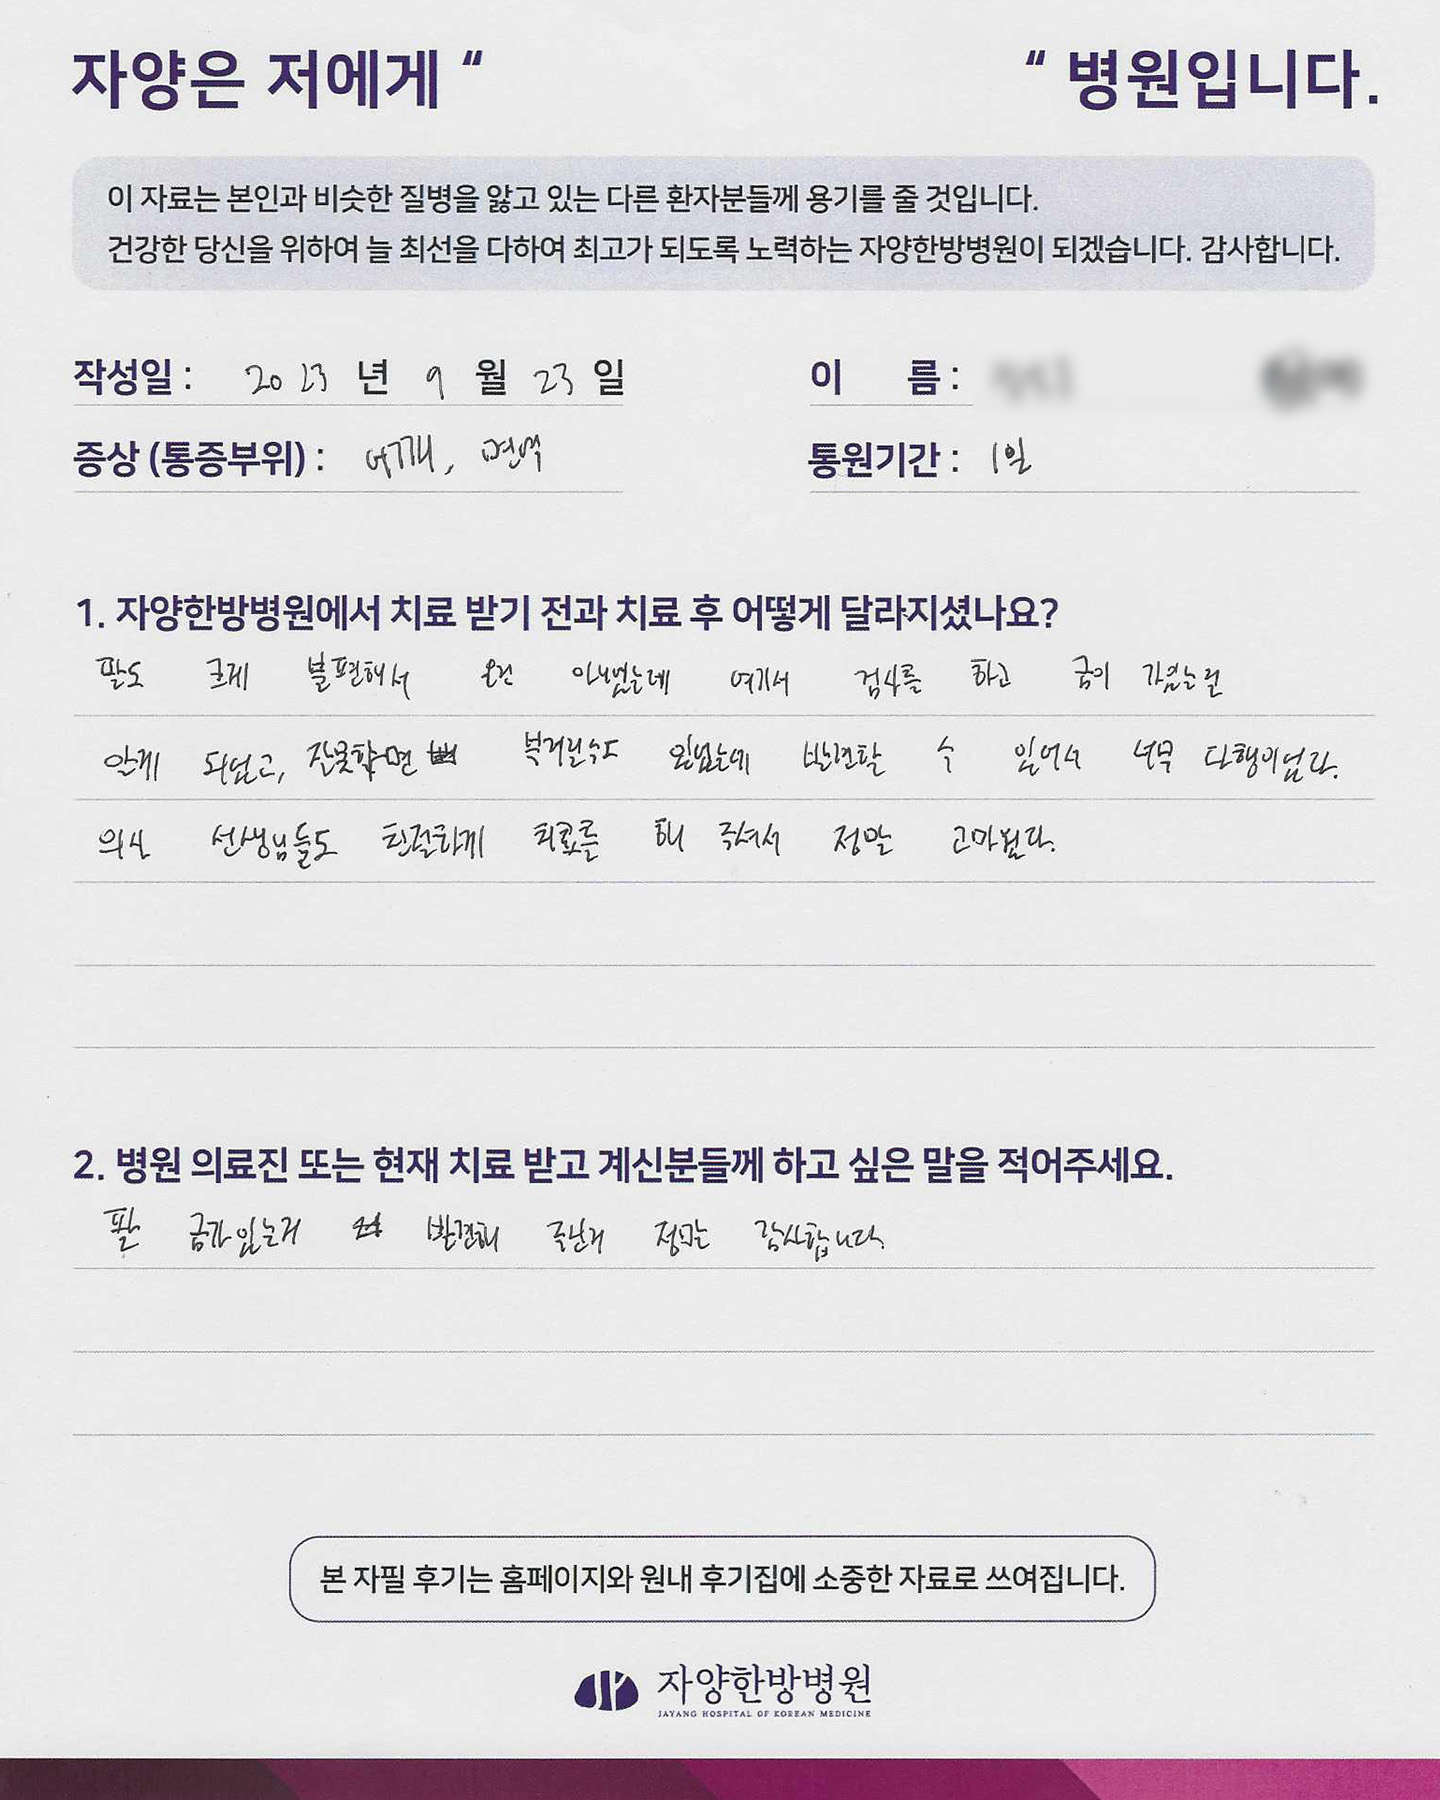 자양은 저에게 “ “ 병원입니다.
이 자료는 본인과 비슷한 질병을 앓고 있는 다른 환자분들께 용기를 줄 것입니다.
건강한 당신을 위하여 늘 최선을 다하여 최고가 되도록 노력하는 자양한방병원이 되겠습니다. 감사합니다.
작성일 : 2023 년 9 월 23 일 이 름 :
증상 (통증부위) : 어깨, 면역 통원기간 : 1일
1. 자양한방병원에서 치료 받기 전과 치료 후 어떻게 달라지셨나요?
팔도 크게 불편해서 온건 아니었는데 여기서 검사를 하고 금이 갔는걸
알게 되었고, 잘못하면 부러질수도 있었는데 발견할 수 있어서 너무 다행이었다.
의사 선생님들도 친절하게 치료를 해 주셔서 정말 고마웠다.
2. 병원 의료진 또는 현재 치료 받고 계신분들께 하고 싶은 말을 적어주세요.
팔 금가있는거 발견해 주신거 정말 감사합니다.
본 자필 후기는 홈페이지와 원내 후기집에 소중한 자료로 쓰여집니다.
자양한방병원
JAYANG HOSPITAL OF KOREAN MEDICINE